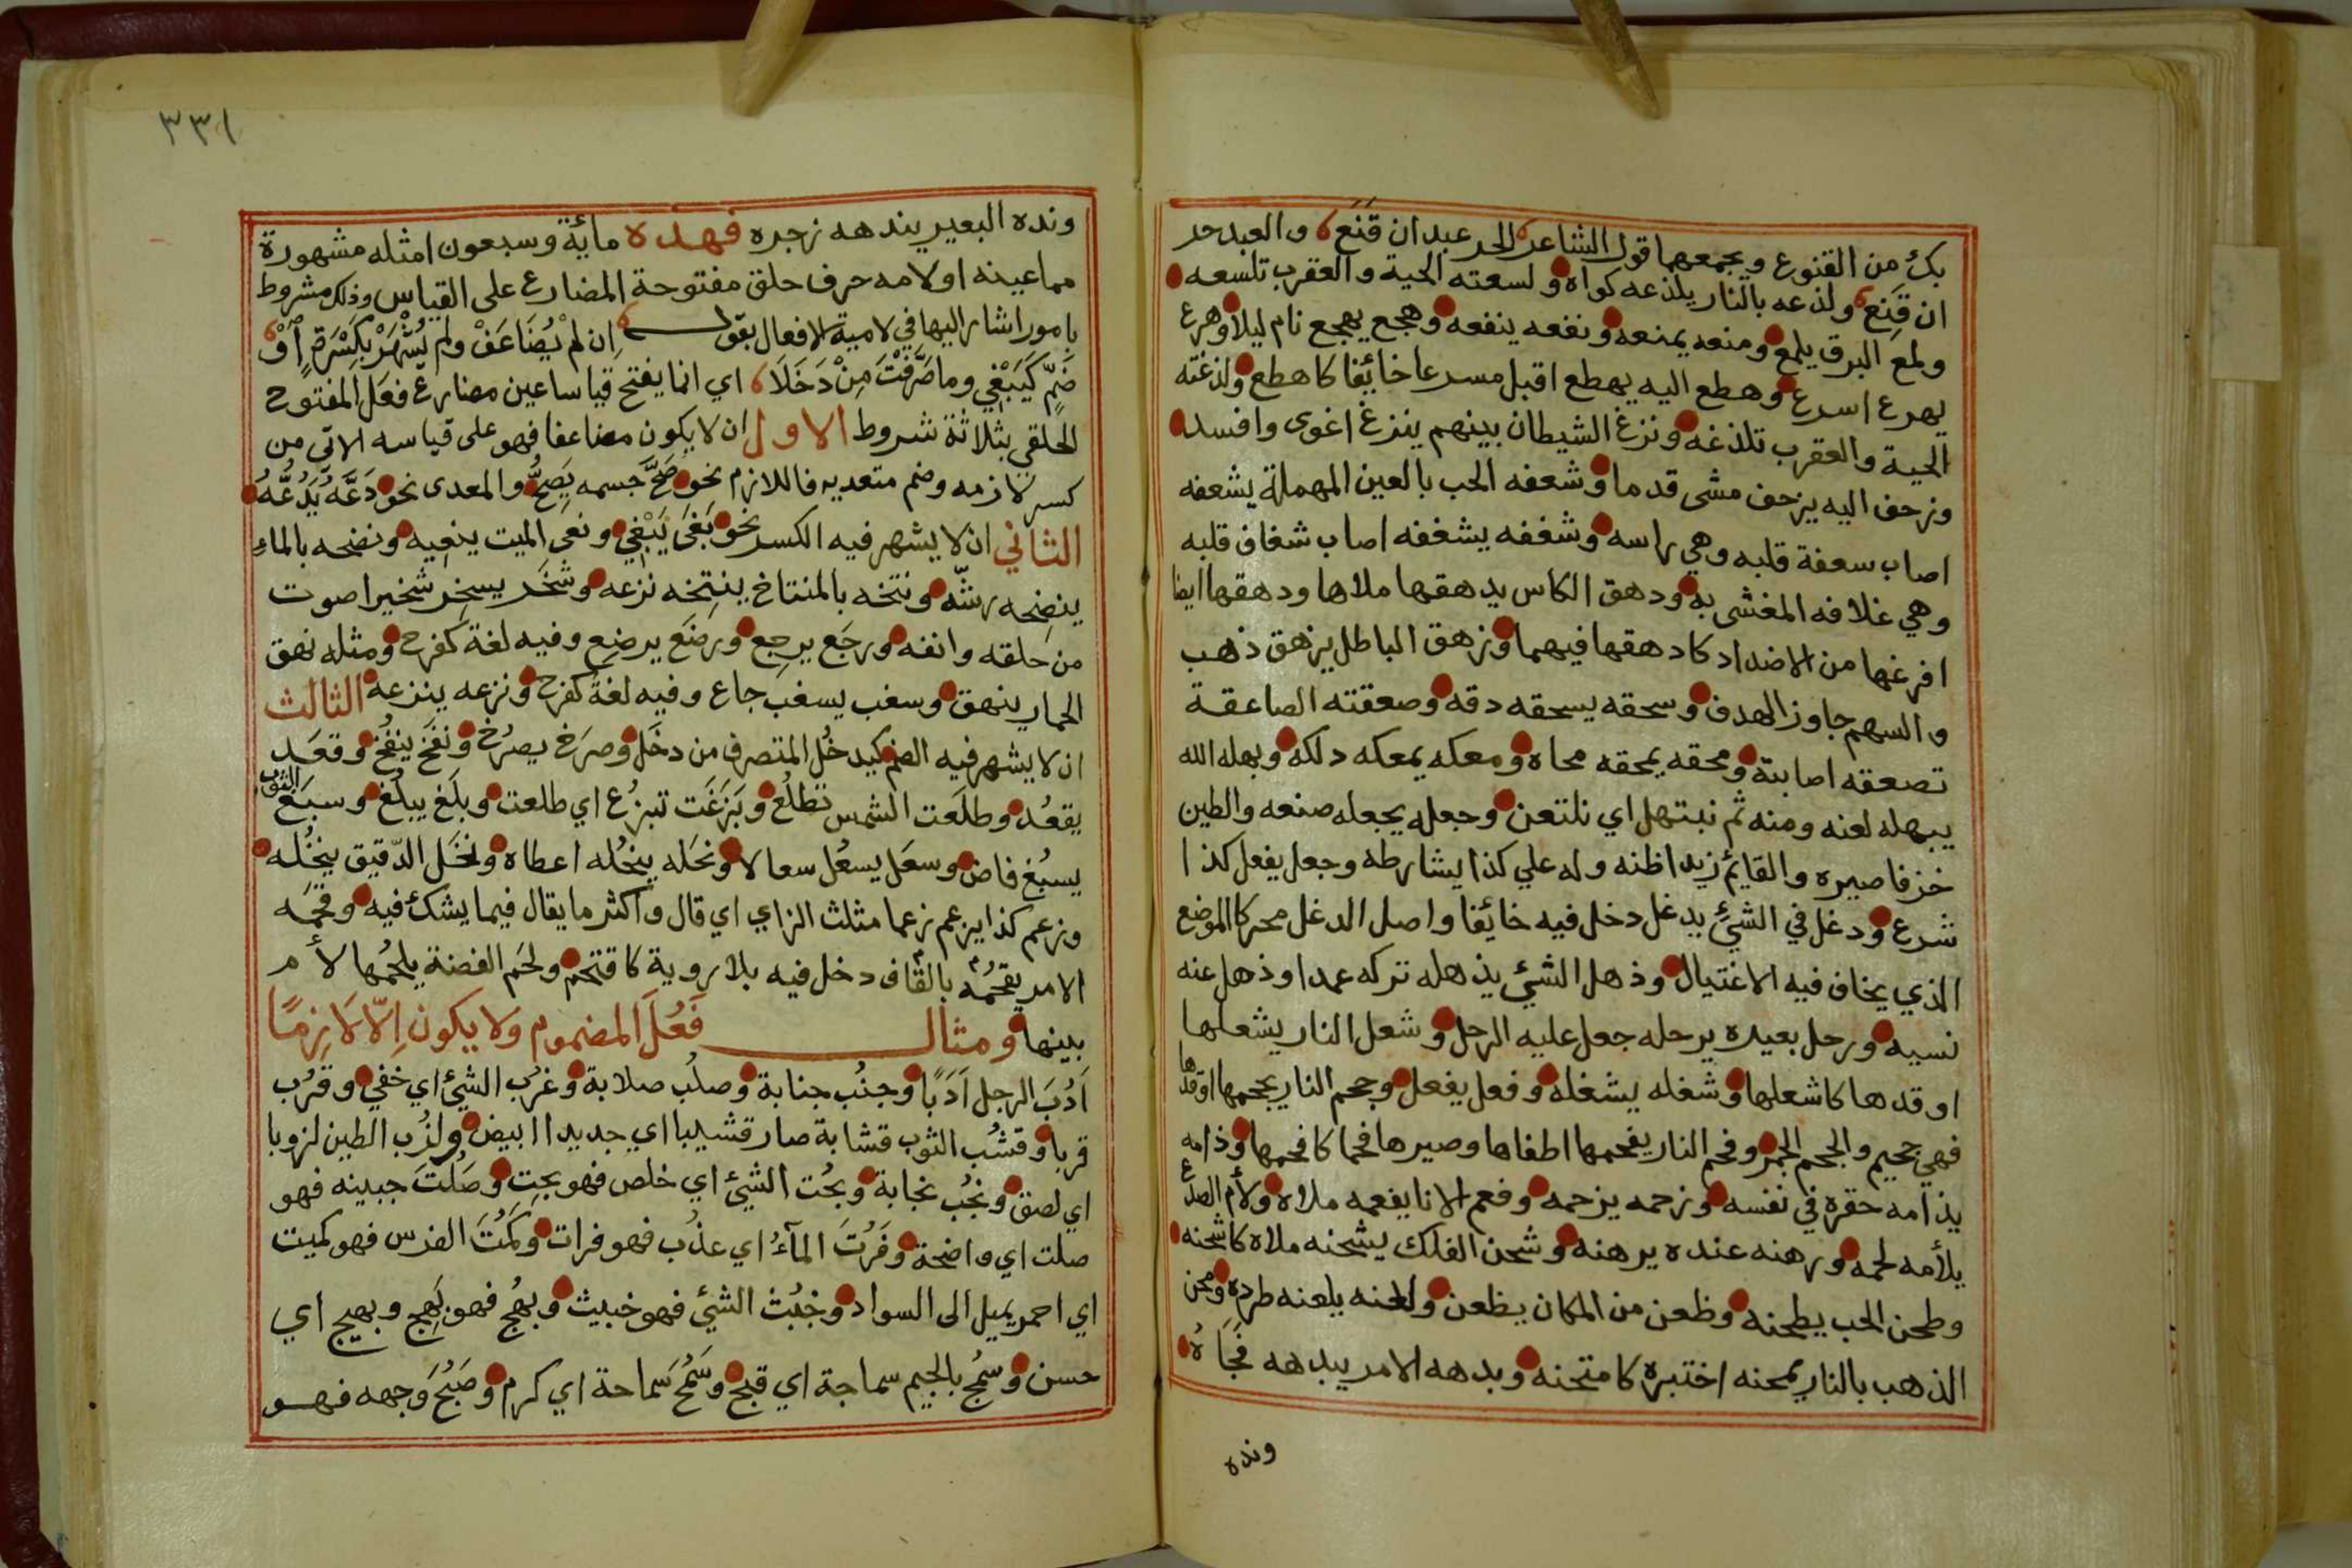 بك من القنوع ويجمعهما قول الشاعر الحر عبد ان قَنَعَ والعبد حر
ان قَنِعَ ولذعه بالنار يلذعه كواه ولسعته الحية والعقرب تلسعه
ولمع البرق يلمع ومنعه يمنعه ونفعه ينفعه وهجع يهجع نام ليلا وهرع
يهرع اسرع وهطع اليه يهطع اقبل مسرعا خائفا كاهطع ولذغته
الحية والعقرب تلذغه ونزغ الشيطان بينهم ينزغ اغوى وافسد
وزحف اليه يزحف مشى قدما وشعفه الحب بالعين المهملة يشعفه
اصاب سعفة قلبه وهي راسه وشغفه يشغفه اصاب شغاف قلبه
وهي غلافه المغشى به ودهق الكاس يدهقها ملاها ودهقها ايضا
افرغها من الاضداد كادهقها فيهما وزهق الباطل يزهق ذهب
والسهم جاوز الهدف وسحقه يسحقه دقه وصعقته الصاعقة
تصعقه اصابته ومحقه يمحقه محاه ومعكه يمعكه دلكه وبهله الله
يبهله لعنه ومنه ثم نبتهل اي نلتعن وجعله يجعله صنعه والطين
خزفا صيره والقايم زيدا ظنه وله علي كذا يشارطه وجعل يفعل كذا
شرع ودغل في الشئ يدغل دخل فيه خائفا واصل الدغل محركا الموضع
الذي يخاف فيه الاغتيال وذهل الشئ يذهله تركه عمدا وذهل عنه
نسيه ورحل بعيره يرحله جعل عليه الرحل وشعل النار يشعلها
اوقدها كاشعلها وشغله يشغله وفعل يفعل وجحم النار يجحمها اوقدها
فهي جحيم والجحم الجمر وفحم النار يفحمها اطفاها وصيرها فحما كافحمها وذامه
يذامه حقره في نفسه وزحمه يزحمه وفعم الانا يفعمه ملاه ولأم الصدع
يلأمه لحمه ورهنه عنده يرهنه وشحن الفلك يشحنه ملاه كاشحنه
وطحن الحب يطحنه وظعن من المكان يظعن ولعنه يلعنه طرده ومحن
الذهب بالنار يمحنه اختبره كامتحنه وبدهه الامر يبدهه فجَاهُ
ونده
٣٣١
ونده البعير يندهه زجره فهذه مائة وسبعون امثله مشهورة
مما عينه او لامه حرف حلق مفتوحة المضارع على القياس وذلك مشروط
بامور اشار اليها في لامية الافعال بقوله اِن لمْ يُضَاعَفْ ولم يُشْهَرْ بكَسْرَةٍ أَوْ
ضَمٍّ كَيَبْغِي وما صَرَّفْتَ مِنْ دَخَلَا اي انما يفتح قياسا عين مضارع فعَل المفتوح
الحلقي بثلاثة شروط الاول ان لا يكون مضاعفا فهو على قياسه الاتي من
كسر لازمه وضم متعديه فاللازم نحو صَحَّ جسمه يَصِحُّ والمعدى نحو دَعَّهُ يَدُعُّهُ
الثاني ان لا يشهر فيه الكسر نحو بَغَى يَبْغِي ونعى الميت ينعِيه ونضحه بالماءِ
ينضِحه رشّه ونتخه بالمنتاخ ينتِخه نزعه وشخَر يسخِر شخيرا صوت
من حلقه وانفه ورجَع يرجِع ورضَع يرضِع وفيه لغة كفرح ومثله نهق
الحمار ينهق وسغب يسغب جاع وفيه لغة كفرح ونزعه ينزعه الثالث
ان لا يشهر فيه الضم كيدخُل المتصرف من دخَل وصرَخ يصرُخ ونفَخ ينفُخ وقعَد
يقعُد وطلَعت الشمس تطلُع وبَزَغَت تبزُغ اي طلعت وبلَغ يبلُغ وسبَغ الثوب
يسبُغ فاض وسعَل يسعُل سعالا ونحَله ينحُله اعطاه ونخَل الدّقيق ينخُله
وزعم كذا يزعم زعما مثلث الزاي اي قال واكثر ما يقال فيما يشك فيه وقحَمه
الامر يقحُمُه بالقاف دخل فيه بلا روية كاقتحم ولحَم الفضة يلحُمها لأم
بينها ومثال فَعُلَ المضموم ولا يكون اِلّا لَازِمًا
اَدُبَ الرجل اَدَبًا وجنُب جنابة وصلُب صلابة وغرُب الشئ اي خفي وقرُب
قربا وقشُب الثوب قشابة صار قشيبا اي جديدا ابيض ولزُب الطين لزوبا
اي لصق ونجُب نجابة وبحُت الشئ اي خلص فهو بحت وصَلُتَ جبينه فهو
صلت اي واضحة وفَرُتَ المآءُ اي عذُب فهو فرات وكَمُتَ الفرس فهو كميت
اي احمر يميل الى السواد وخبُث الشئ فهو خبيث وبهُج فهو بَهِج وبهيج اي
حسن وسمُج بالجيم سماجة اي قبح وسَمُحَ سَماحة اي كرم وصَبُحَ وَجهه فهو